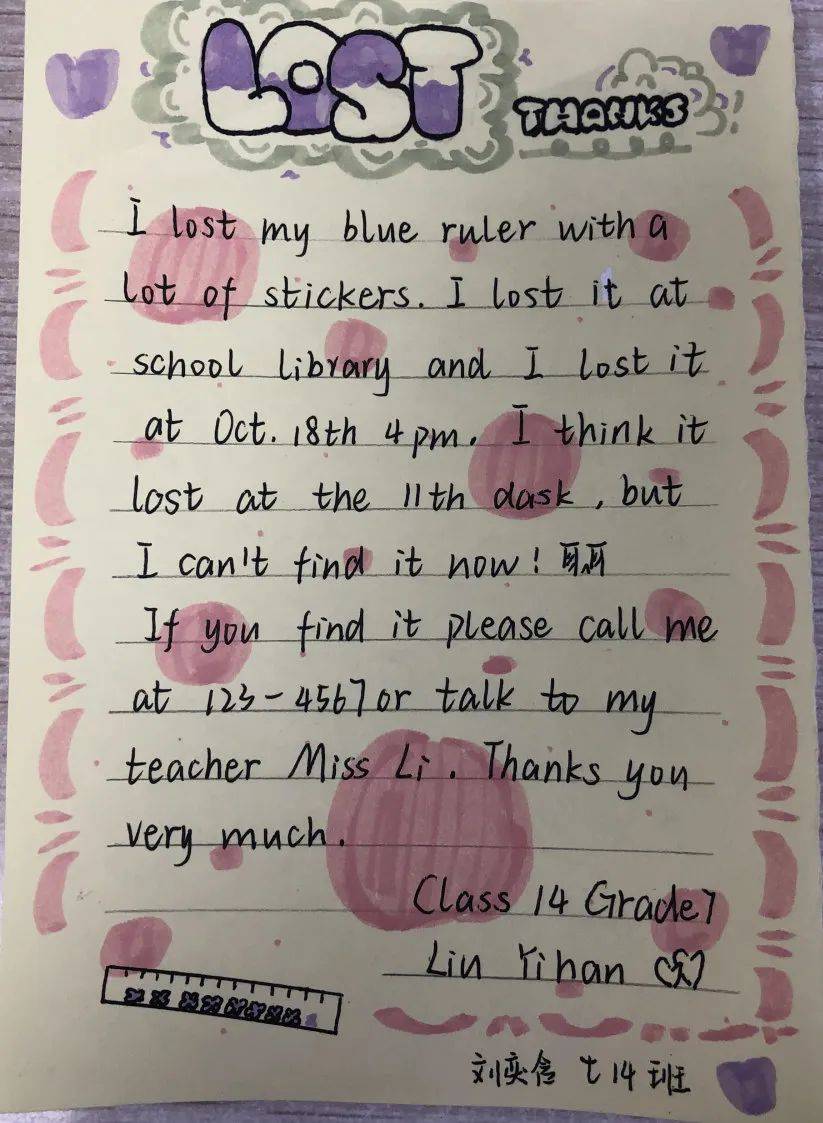 LOST
THANKS
I lost my blue ruler with a
lot of stickers. I lost it at
school library and I lost it
at Oct. 18th 4 pm. I think it
lost at the 11th dask, but
I can't find it now!
If you find it please call me
at 123-4567 or talk to my
teacher Miss Li. Thanks you
very much.
Class 14 Grade7
Liu Yihan
刘奕含 七14班